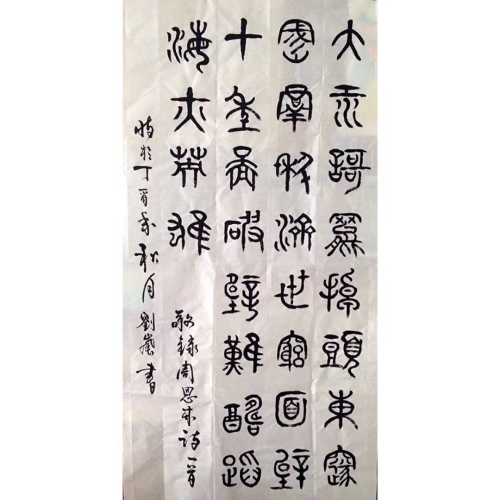 大江歌罷掉頭東邃
密羣科濟世窮面壁
十年圖破壁難酬蹈
海亦英雄
敬錄周恩來詩一首
時於丁酉年秋月劉 書